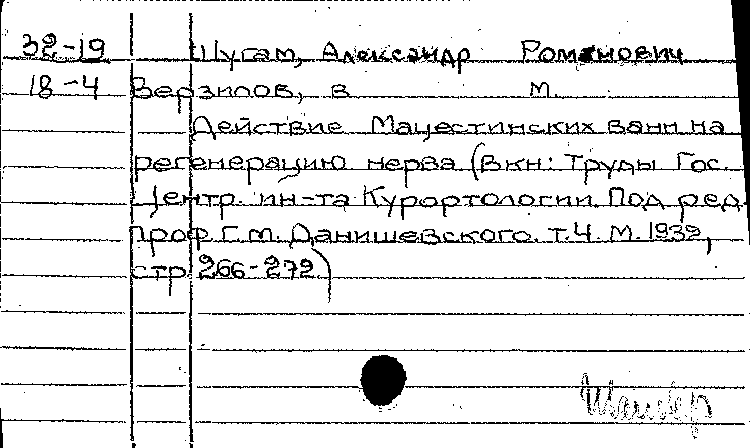 32-19 Шугам, Александр Романович
18-4 Верзилов, В М.
Действие Мацестинских ванн на
регенерацию нерва (Вкн: Труды Гос.
Центр. ин-та Курортологии. Под ред.
проф Г.М. Данишевского. т.4. М. 1932,
стр 266-272)